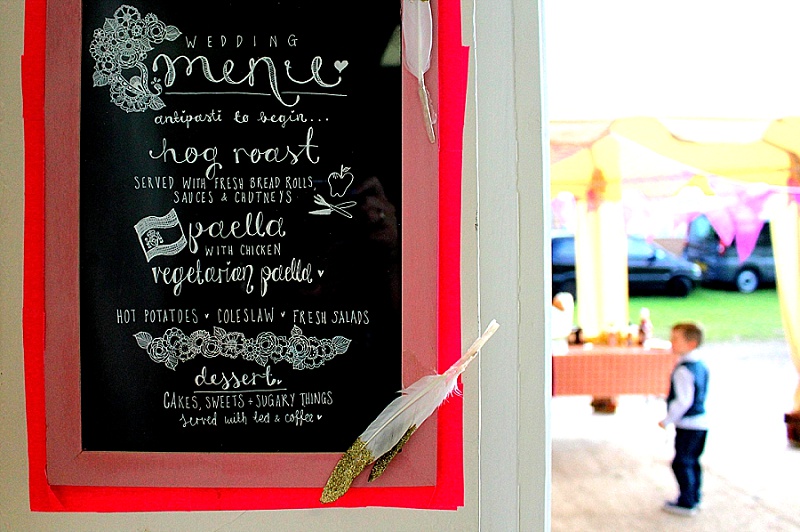 WEDDING
menu
antipasti to begin...
hog roast
SERVED WITH FRESH BREAD ROLLS,
SAUCES & CHUTNEYS
paella
WITH CHICKEN
vegetarian paella
HOT POTATOES ♥ COLESLAW ♥ FRESH SALADS
dessert
CAKES, SWEETS + SUGARY THINGS
served with tea & coffee ♥